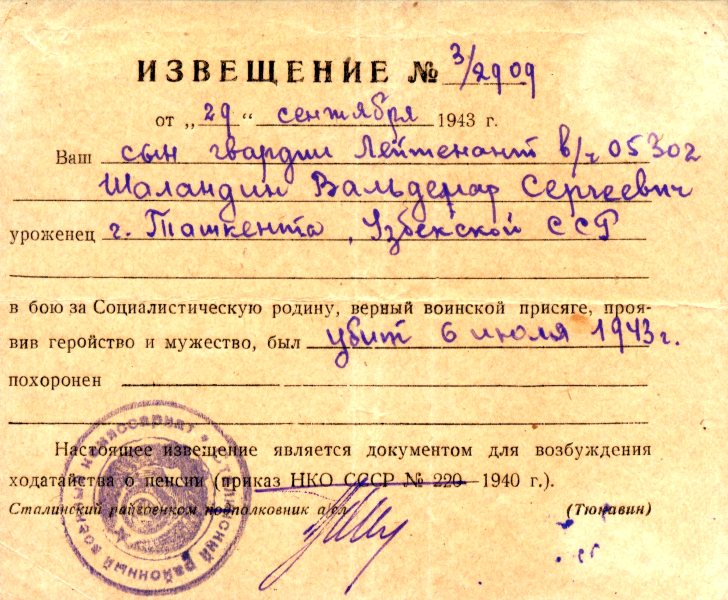 ИЗВЕЩЕНИЕ № 3/2909
от „29“ сентября 1943 г.
Ваш сын гвардии Лейтенант в/ч 05302
Шаландин Вальдемар Сергеевич
уроженец г. Ташкента, Узбекской ССР
в бою за Социалистическую родину, верный воинской присяге, проя-
вив геройство и мужество, был убит 6 июля 1943 г.
похоронен
Настоящее извещение является документом для возбуждения
ходатайства о пенсии (приказ НКО СССР № 220 1940 г.).
Сталинский райвоенком подполковник а/сл (Тюнавин)
Сталинский районный военный комиссариат